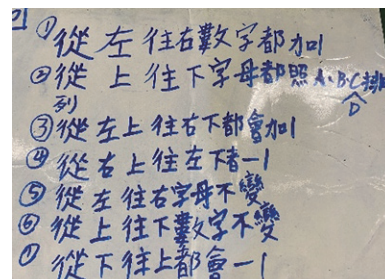 ①從左往右數字都加1
②從上往下字母都照A、B、C、D排
列
③從左上往右下都會加1
④從右上往左下者-1
⑤從左往右字母不變
⑥從上往下數字不變
①從下往上都會-1